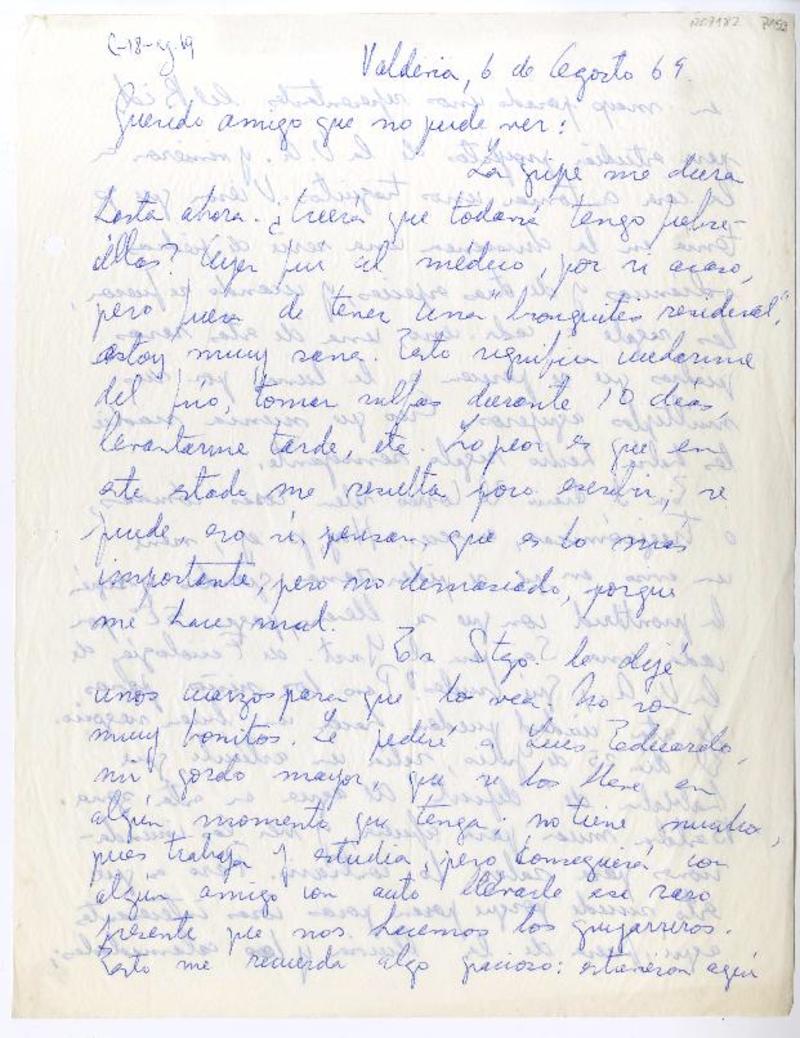 C-18-ag.69
Valdivia, 6 de Agosto 69.
Querido amigo que no pude ver:
La gripe me dura
hasta ahora. ¿Creerá que todavía tengo fiebre-
cillas? Ayer fui al médico, por si acaso,
pero fuera de tener una "bronquitis residual",
estoy muy sana. Esto significa cuidarme
del frío, tomar sulfas durante 10 días,
levantarme tarde, etc. Lo peor es que en
este estado me resulta poco escribir; se
puede, eso sí, pensar, que es lo más
importante, pero no demasiado, porque
me hace mal.
En Stgo. le dejé
unos cuarzos para que los vea. No son
muy bonitos. Le pediré a Luis Eduardo,
mi gordo mayor, que se los lleve en
algún momento que tenga; no tiene mucho,
pues trabaja y estudia, pero conseguirá con
algún amigo con auto llevarle ese raro
presente que nos hacemos los guijarreros.
Esto me recuerda algo gracioso: estuvieron aquí